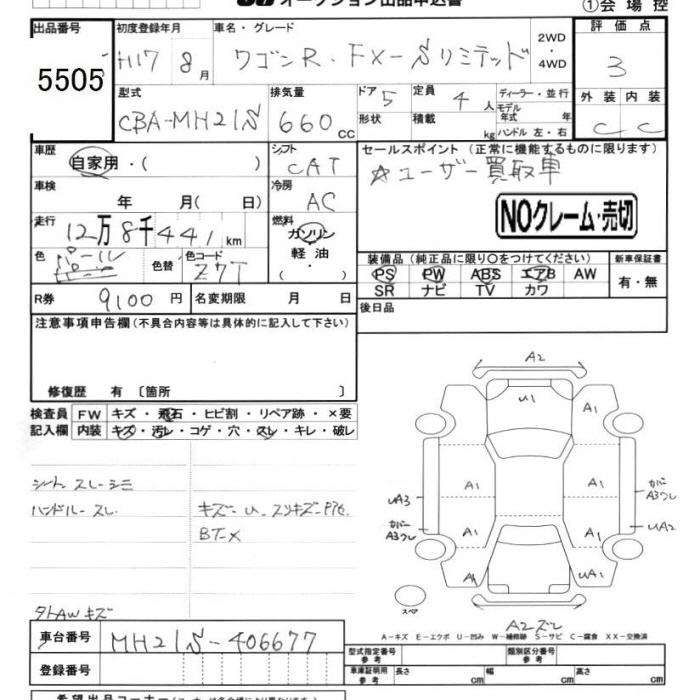 オークション出品申込書
①会場控
出品番号 5505
初度登録年月 H17 8月
車名・グレード ワゴンR・FX-Sリミテッド
2WD・4WD
評価点 3
外装 C 内装 C
型式 CBA-MH21S
排気量 660cc
ドア 5 形状
定員 4人 積載 kg
ディーラー・並行
モデル年式 年
ハンドル 左・右
車歴 自家用・( )
シフト CAT
セールスポイント (正常に機能するものに限ります)
☆ユーザー買取車
車検 年 月( 日)
冷房 AC
NOクレーム・売切
走行 12万8千441km
燃料 ガソリン・軽油・( )
色 パール 色替 色コード Z7T
装備品 (純正品に限り○をつけてください)
新車保証書 有・無
PS PW ABS エアB AW
SR ナビ TV カワ
R券 9100円 名変期限 月 日
後日品
注意事項申告欄 (不具合内容等は具体的に記入して下さい)
修復歴 有〔箇所 〕
検査員記入欄
FW キズ・飛石・ヒビ割・リペア跡・×要
内装 キズ・汚レ・コゲ・穴・スレ・キレ・破レ
シートスレ-シミ
ハンドルースレ
キズ-U. スリキズ-
BT-X
タトAWキズ
A2
U1
A1
A1
A1
A1
UA3
カバーA3ワレ
カバーA3ワレ
UA2
A1
A1
A1
UA1
スペア
A2ズレ
A-キズ E-エクボ U-凹み W-補修跡 S-サビ C-腐食 XX-交換済
車台番号 MH21S-406677
登録番号
型式指定番号 参考
類別区分番号 参考
車庫証明用 参考 長さ cm 幅 cm 高さ cm
希望出品コーナー